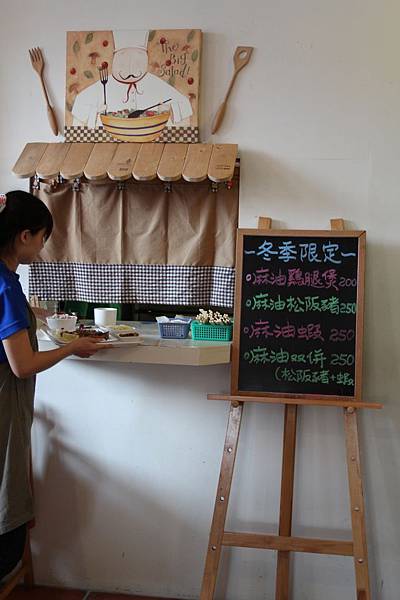 The
Big
Salad!
-冬季限定-
麻油雞腿煲200
麻油松阪豬250
麻油蝦 250
麻油双併 250
(松阪豬+蝦)